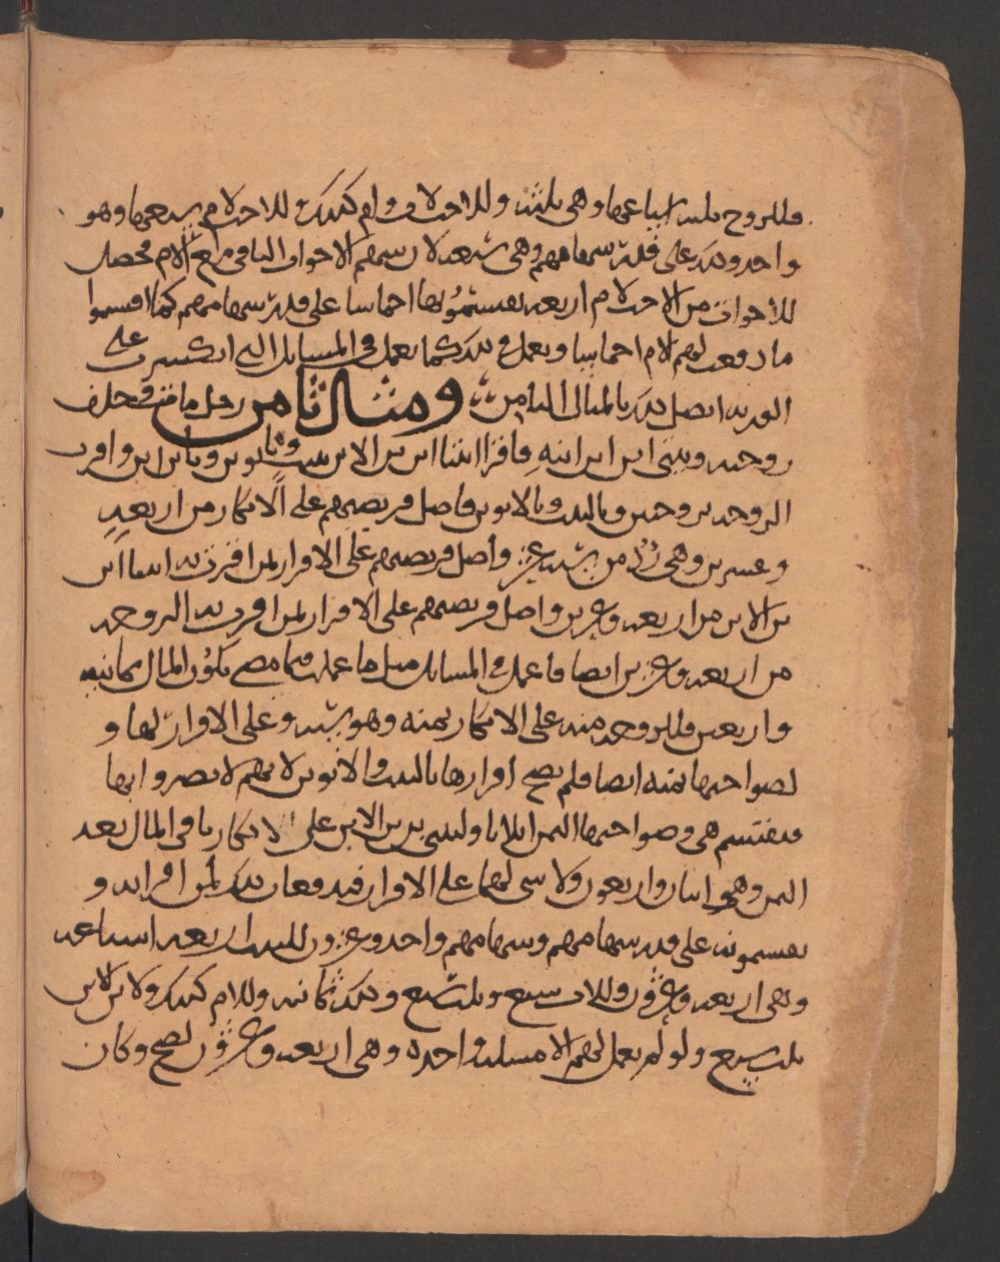 فللزوج ثلثة اسباعها وهي ثلثة وللاخت لاب وام كذلك وللاخت لام سبعها وهو
واحد وذلك على قدر سهامهم وهي سبعة لان سهم الاخوات الباقي مع الام فحصل
للاخوات من الاخت لام اربعة يقسمونها اخماسا على قدر سهامهم كما اقتسموا
ما دفعت لهم الام اخماسا ويعمل في ذلك كما يعمل في المسايل التي انكسرت على
الورثة اتصل ذلك بالمثال الثامن ومثال ثامن رجل مات وخلف
زوجته وبنتي ابن ابن ابنه فاقرا ابنتا ابن ابن الابن ببنت وبابوين وبابن ابن واقرت
الزوجة بزوجتين وبالبنت وبالابوين فاصل فريضتهم على الانكار من اربعة
وعشرين وهي من ستة عشر واصل فريضتهم على الاقرار لمن اقرت به ابنتا ابن
بن الابن من اربعة وعشرين واصل فريضتهم على الاقرار لمن اقرت به الزوجة
من اربعة وعشرين ايضا فاعمل في المسايل مثل ما عملت فيما مضى يكون المال ثمانية
واربعين فللزوجة منه على الانكار ثمنه وهو ستة وعلى الاقرار لها و
لصواحبها ثمنه ايضا فلم يصح اقرارها بالبنت والابوين لانهم لا يضروا بها
فتقتسم هي وصواحبها الثمن اثلاثا ولبنتي بن بن الابن على الانكار باقي المال بعد
الثمن وهو اثنان واربعون ولا شي لهما على الاقرار فيدفعان ذلك لمن اقرا به و
يقسمونه على قدر سهامهم وسهامهم واحد وعشرون للبنت اربعة اسباعه
وهي اربعة وعشرون وللاب سبع وثلث سبع وذلك ثمانية وللام كذلك ولابن الابن
ثلث سبع ولو لم يعمل لهم الا مسلة واحدة وهي اربعة وعشرون لصح وكان